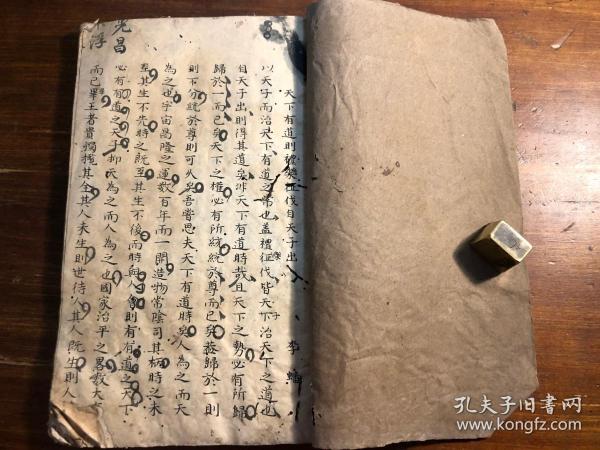 天下有道則禮樂征伐自天子出 李
以天子而治天下有道之常也蓋禮征伐皆天下治天下之道也
自天子出則得其道矣非天下有道時哉且天下之勢必有所歸
歸於一而已矣天下之權必有所統統於尊而已矣蓋歸於一則
則下分統於尊則可久矣吾嘗思夫天下有道時矣人為之而天
為之也宇宙昌隆之運數百年而一開造物常陰司其柄時之未
至其生不先時之既至其生不後而時與人會則有有道之天下
必有有道之天子抑天為之而人為之也國家治平之畧數大
而已畢王者貴獨攬其全其人未生則世待人其人既生則人
光昌
浮
孔夫子旧書网
book.kongfz.com